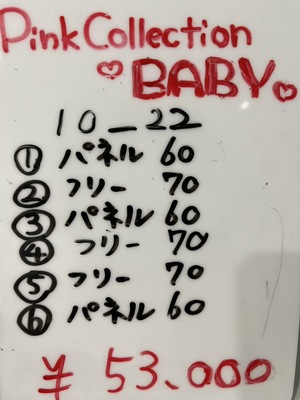 Pink Collection
♡ BABY♡
10_22
① パネル 60
② フリー 70
③ パネル 60
④ フリー 70
⑤ フリー 70
⑥ パネル 60
¥ 53.000